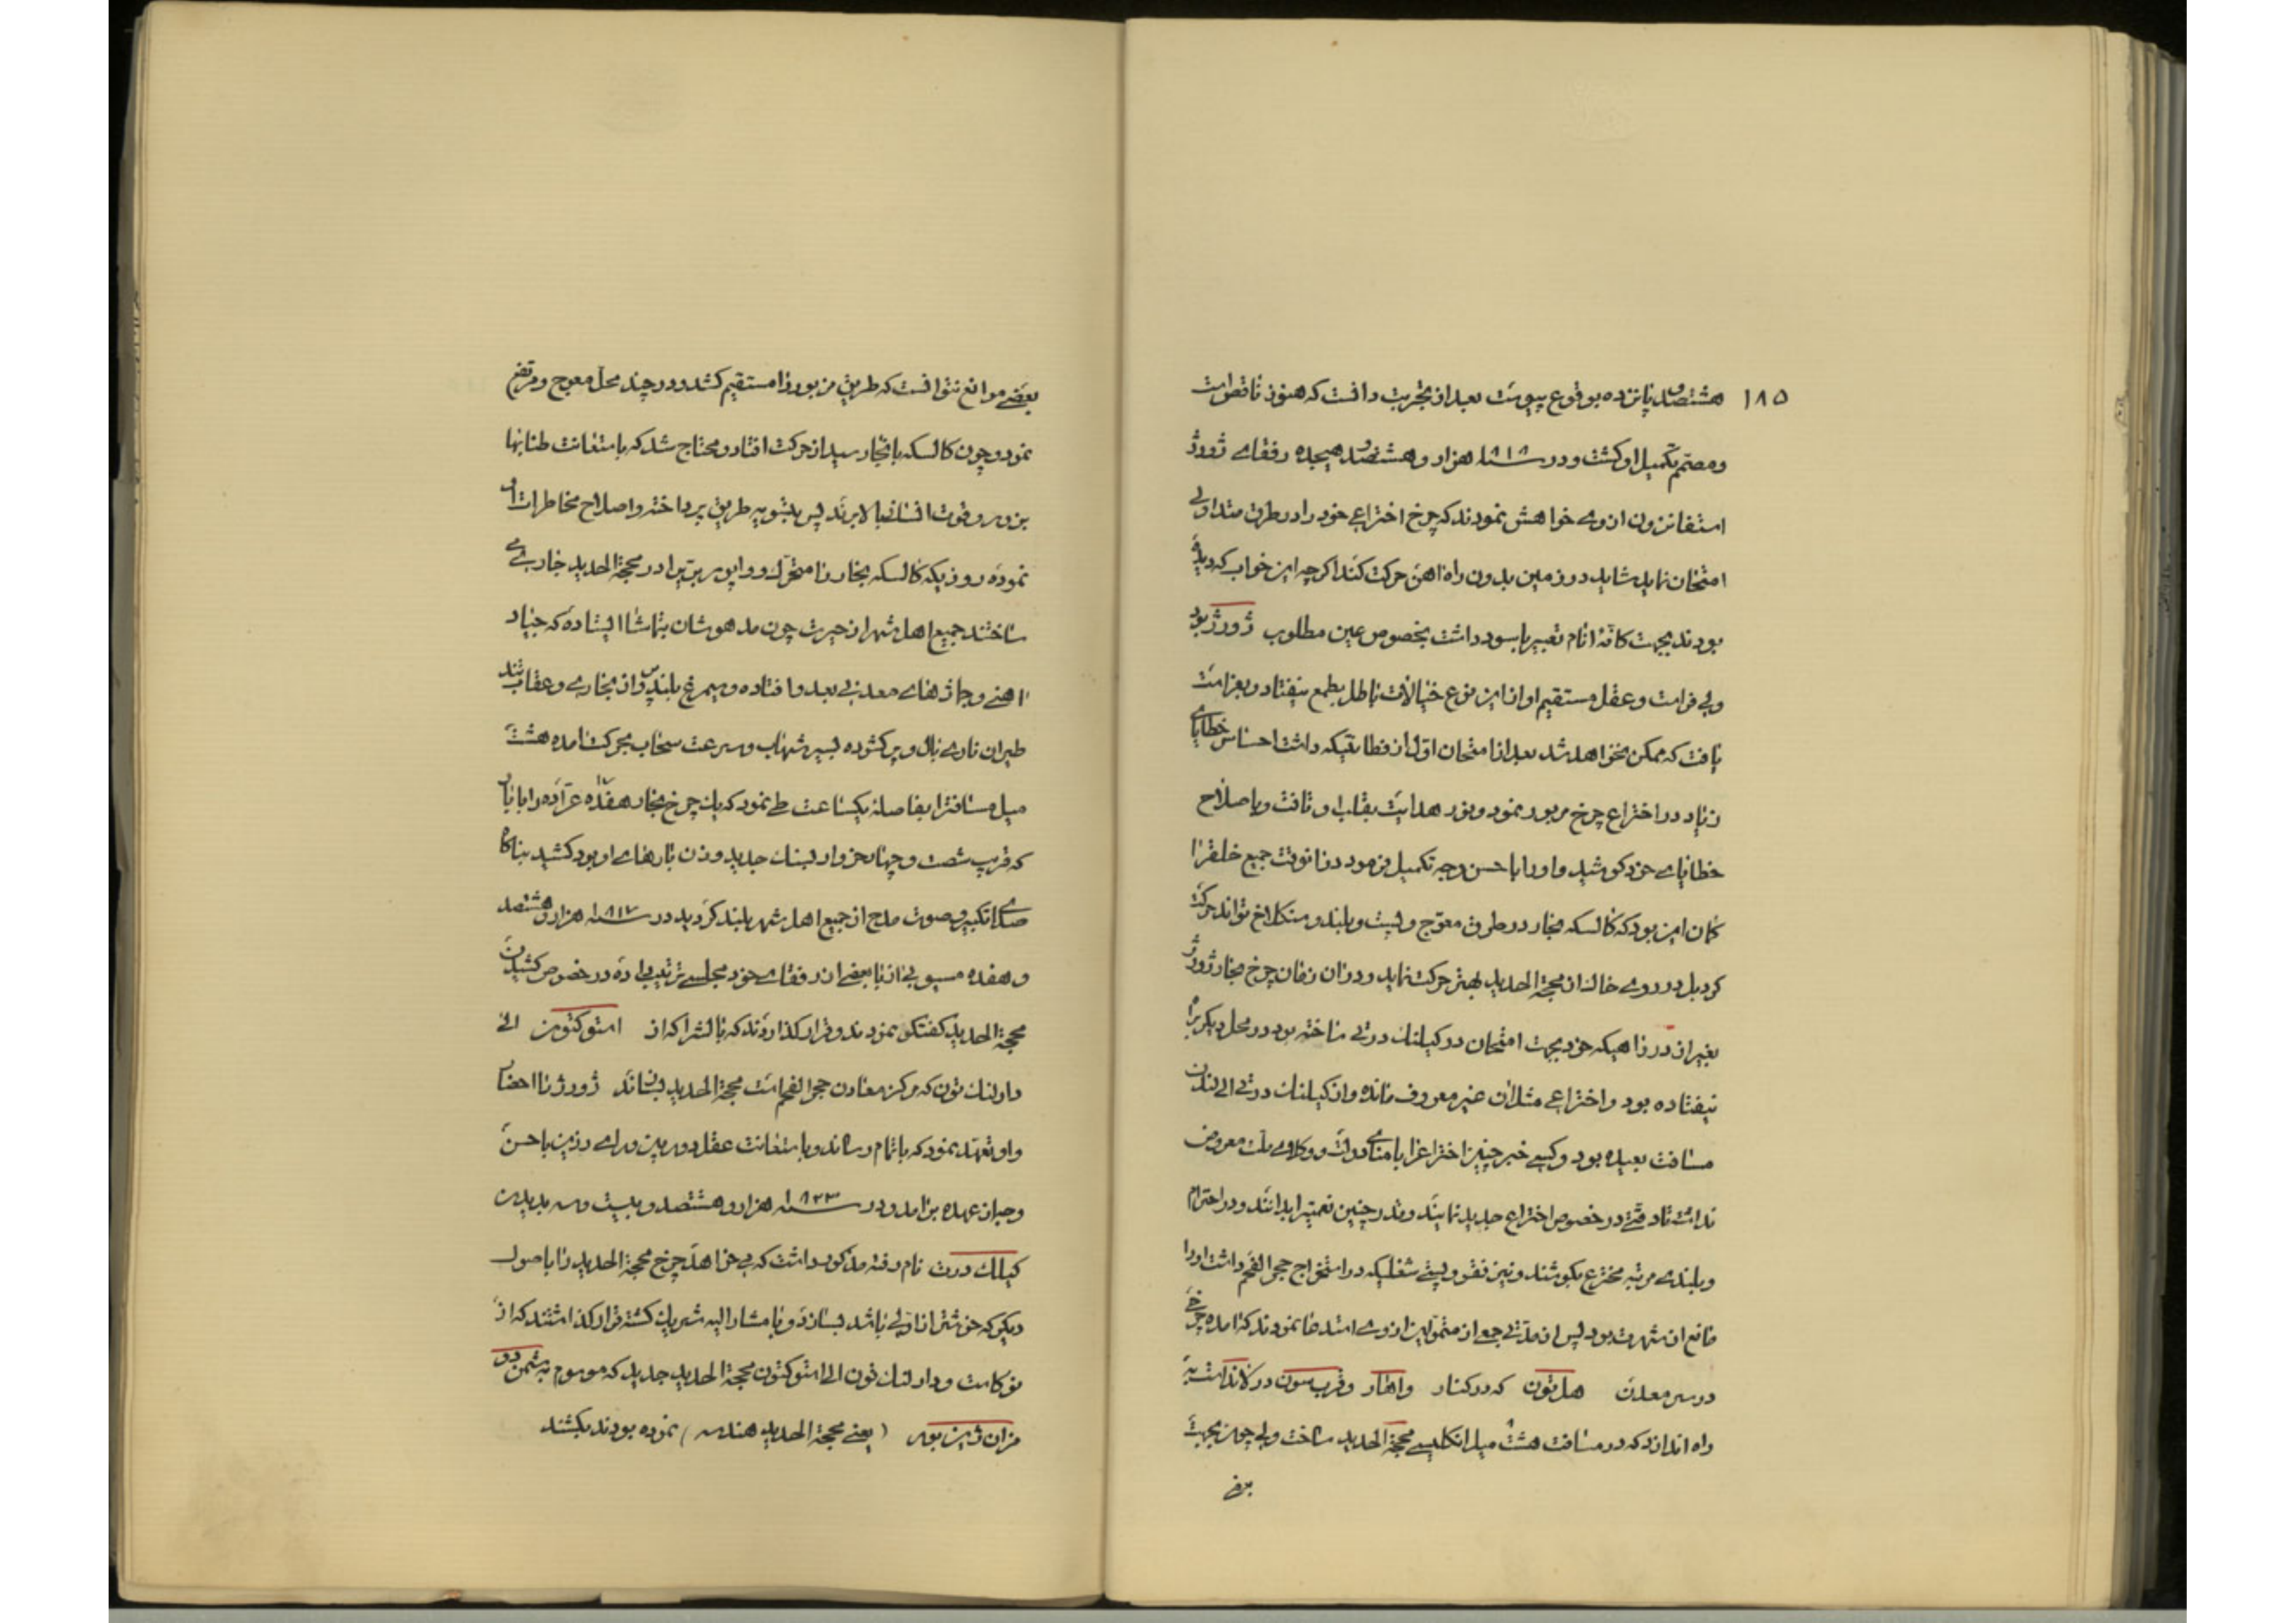 ۱۸۵ هشتصد و پانزده بوقوع پیوست بعد از تجربت دانست که هنوز ناقص است
و مصمم تکمیل او گشت و در سنه ۱۸۱۸ هزار و هشتصد و هیجده رفقای ژورژ
استفانزون از وی خواهش نمودند که چرخ اختراعی خود را در طرق متداولی
امتحان نماید شاید در زمین بدون راه اهن حرکت کند اگرچه این خواب که دیده
بودند بجهت کافه انام تعبیر با سود داشت بخصوص عین مطلوب ژورژ بود
ولی فراست و عقل مستقیم او از این نوع خیالات باطل بطمع نیفتاد و بفراست
یافت که ممکن نخواهد شد بعد از امتحان اول از فطانتیکه داشت احساس خطایای
زیاد در اختراع چرخ مزبور نمود و نور هدایت بقلب او تافت و باصلاح
خطایای خود کوشید و او را باحسن وجه تکمیل فرمود در انوقت جمیع خلق را
گمان این بود که کالسکه بخار در طرق معوج و پست و بلند و سنگلاخ تواند حرکت
کرد بل در روی خاک از محجة الحدید بهتر حرکت نماید و در ان زمان چرخ بخار ژورژ
بغیر از در راهیکه خود بجهت امتحان در کیلنک درتی ساخته بود در محل دیگر براه
نیفتاده بود و اختراعی مثل ان غیر معروف مانده و از کیلنک درتی الی لندن
مسافت بعیده بود و کسی خبر چنین اختراع را بامنای دولت و وکلای ملت معروض
نداشت تا دقتی در خصوص اختراع جدید نمایند و قدر چنین نعمتی را بدانند و در احترام
و بلندی مرتبه مخترع بکوشند و نیز فقر و پستی شغلیکه در استخراج حجر الفحم داشت او را
مانع از شهرت بود پس از مدتی جمعی از متمولین از وی استدعا نمودند که امده چرخی
در سر معدن هل تون که در کنار واهار و قرب سون در لاند است به
راه اندازد که در مسافت هشت ۸ میل انکلیسی محجة الحدید ساخت ولی چون بجهت
بعضی
بعضی موانع نتوانست که طریق مزبور را مستقیم کشد و در چند محل معوج و مرتفع
نمود و چون کالسکه بانجا رسید از حرکت افتاد و محتاج شد که باستعانت طنابها
بزور و قوت انسان ببالا برند پس بتسویه طریق پرداخته و اصلاح مخاطرات او
نموده روزیکه کالسکه بخار را متحرک و واپور برّی را در محجة الحدید جاری
ساختند جمیع اهل شهر از حیرت چون مدهوشان بتماشا ایستاده که جیاد
اهنی و جازهای معدنی بعدو افتاده و سیمرغ بلندپرواز بخاری و عقاب تند
طیران ناری بال و پر گشوده بسیر شهاب و سرعت سحاب بحرکت امده هشت
میل مسافت را بفاصلهٔ یکساعت طی نمود که یک چرخ بخار هفده ۱۷ عراده را با بار
که قریب شصت و چهار خروار بسنک جدید وزن بارهای او بود کشید بناگاه
صدای تکبیر و صوت مدح از جمیع اهل شهر بلند گردید در سنه ۱۸۱۷ هزار و هشتصد
و هفده مسیو پی از با بعضی از رفقای خود مجلسی ترتیب داده در خصوص کشیدن
محجة الحدید گفتگو نمودند و قرار گذاردند که بالشراکه از استوکتون الی
دارلنک تون که مرکز معادن حجر الفحم است محجة الحدید بسازند ژورژ را احضار
و او تعهد نمود که باتمام رساند و باستعانت عقل دوربین و رای رزین باحسن
وجه از عهده برامد و در سنه ۱۸۲۳ هزار و هشتصد و بیست و سه بدیدن
کیلک درت نام رفته مذکور داشت که می‌خواهد چرخ محجة الحدید را باصول
دیگر که خوشتر از اولی باشد بسازد و با مشار الیه شریک گشته قرار گذاشتند که از
نوکاست و دارلنک تون الی استوکتون محجة الحدید جدید که موسوم به شمن دو
فر ان ژینیور (یعنی محجة الحدید هندسه) نموده بودند بکشند